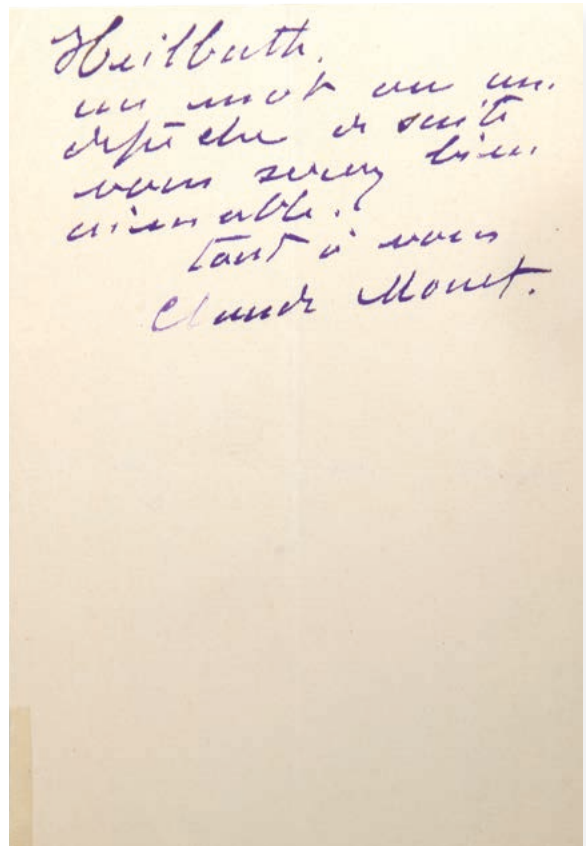 Heilbuth.
un mot ou un.
dépêche de suite
vous serez bien
aimable.
tout à vous
Claude Monet.